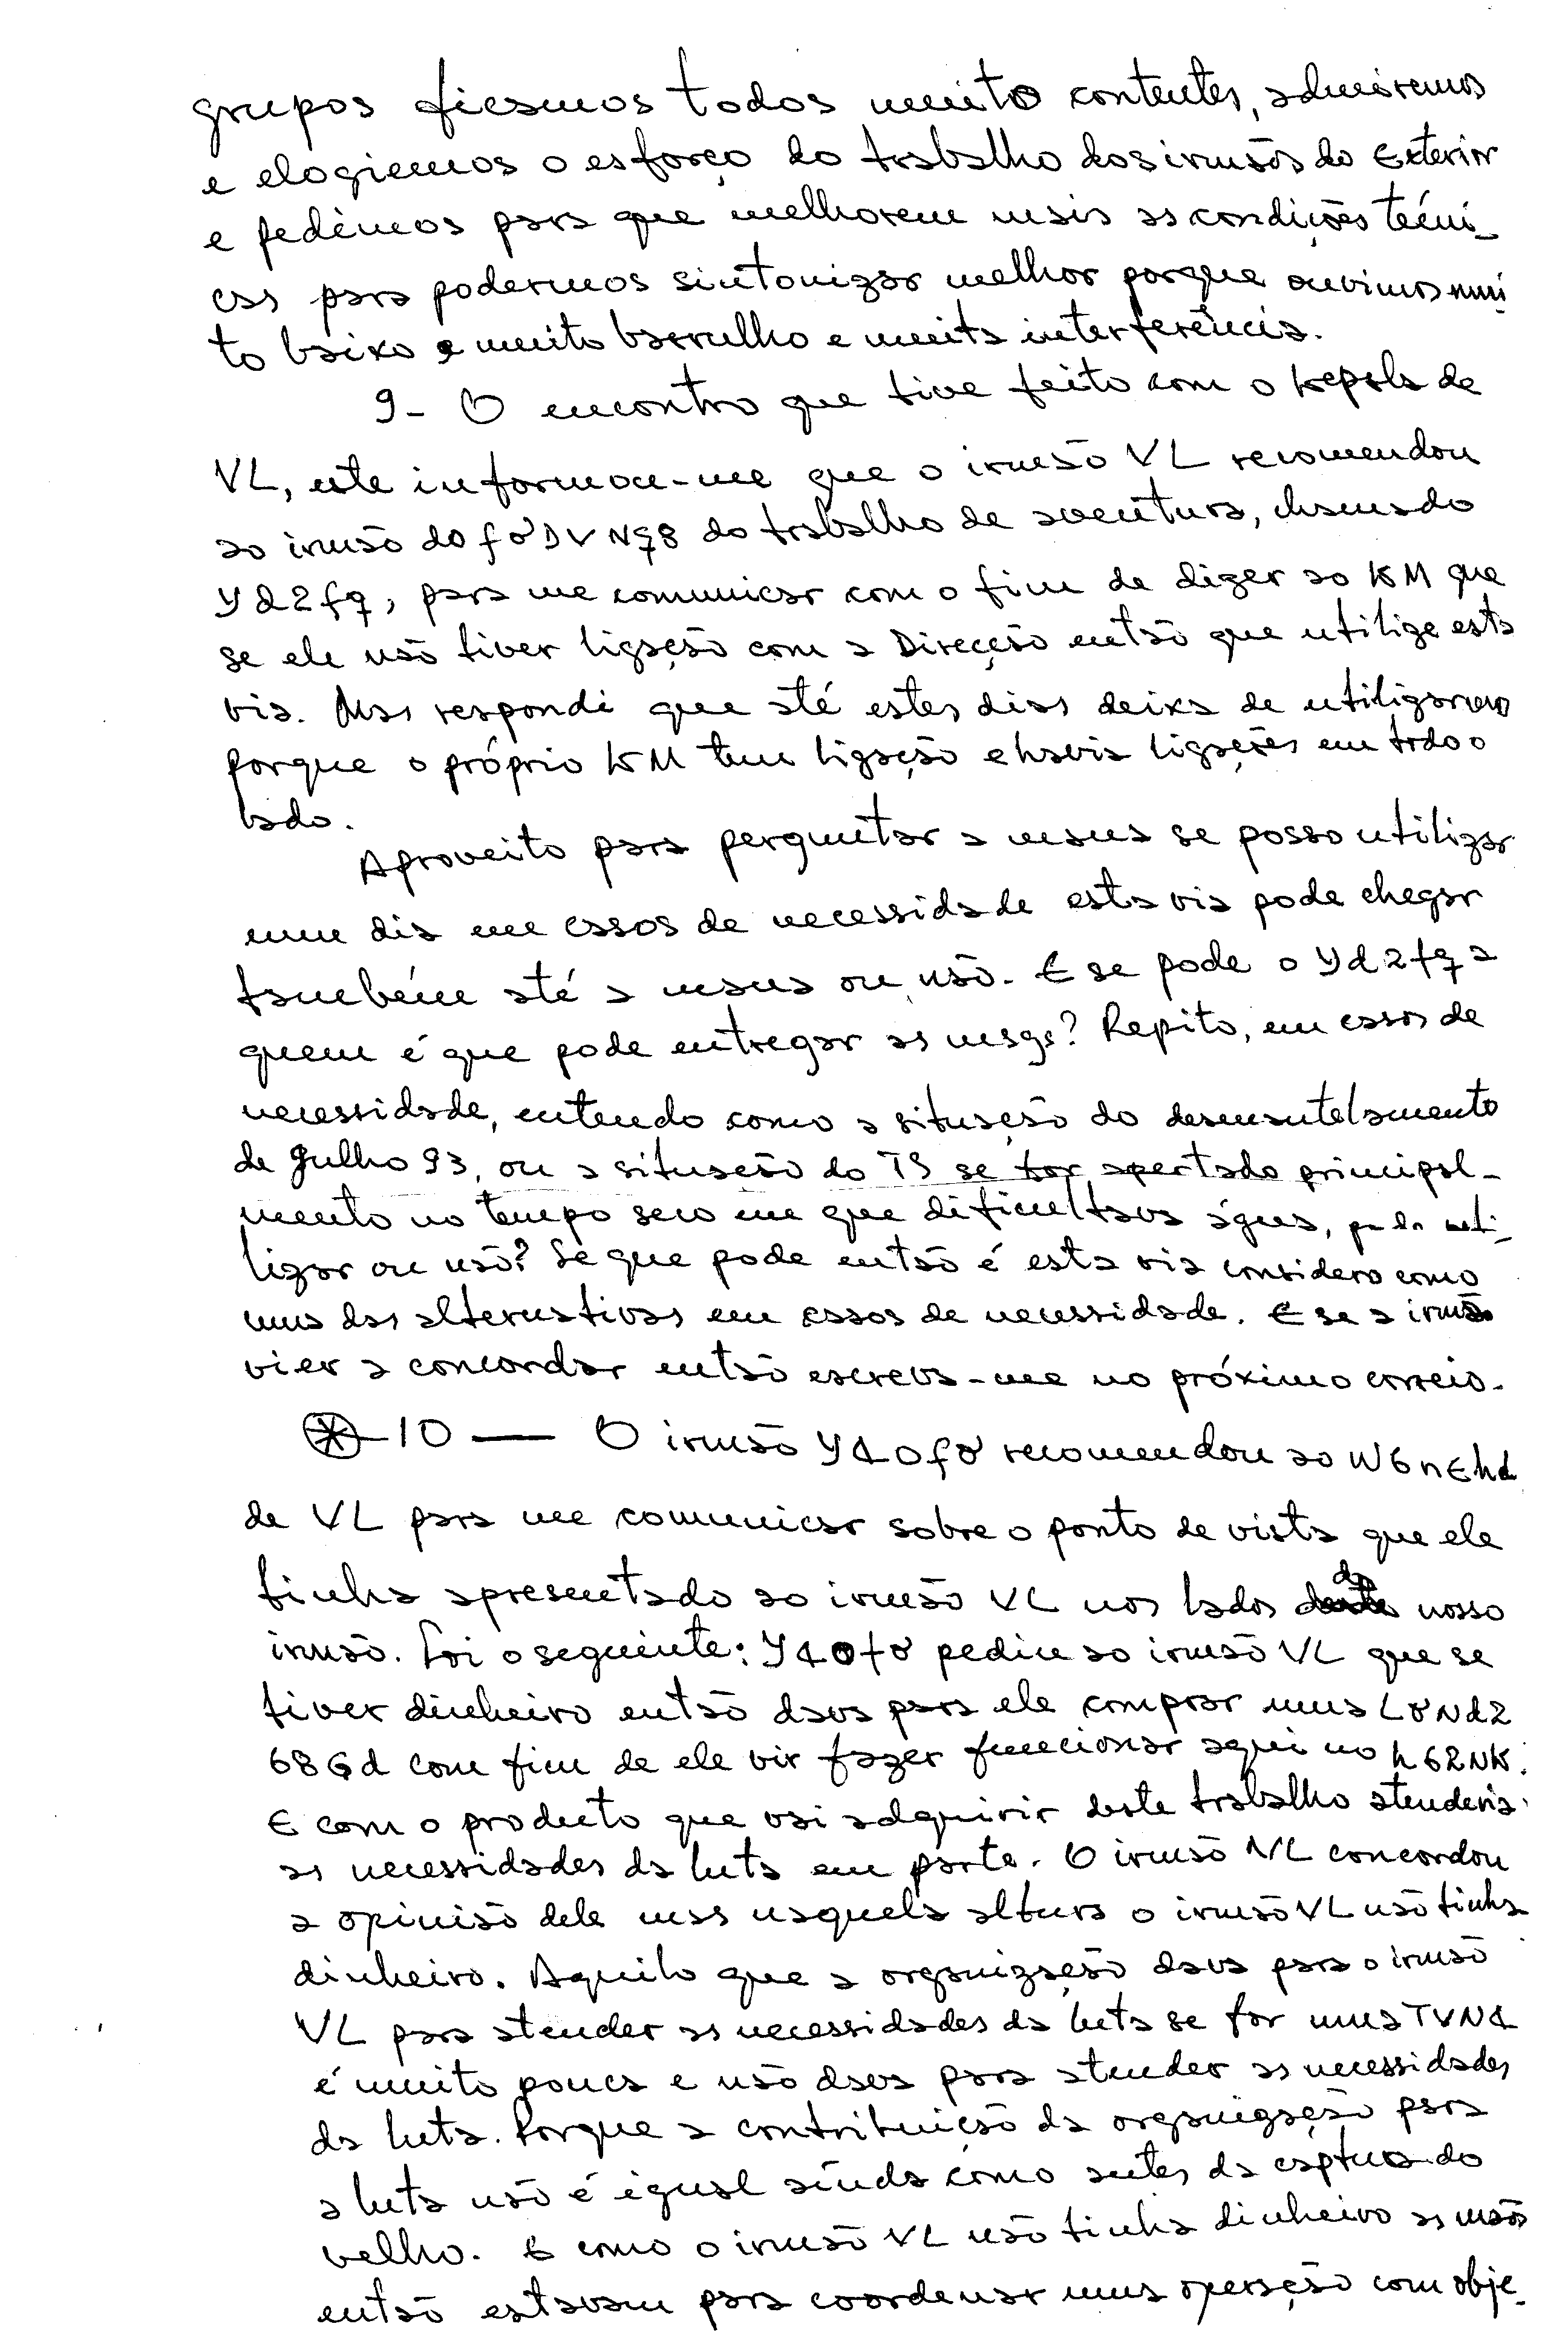 grupos ficamos todos muito contentes, admiremos
e elogiemos o esforço do trabalho dos irmãos do Exterior
e pedèmos para que melhorem mais as condições técni-
cas para podermos sintonizar melhor porque ouvimos mui
to baixo e muito barrulho e muita interferência.
9- O encontro que tive feito com o kepala de
VL, este informou-me que o irmão VL recomendou
ao irmão do do trabalho de aventura, chamado
yd2fq, para me comunicar com o fim de dizer ao KM que
se ele não tiver ligação com a Direcção então que utilize esta
via. Mas respondi que até estes dias deixa de utilizarem
porque o próprio KM tem ligação e havia ligações em todo o
lado.
Aproveito para perguntar a mana se posso utilizar
um dia em casos de necessidade esta via pode chegar
também até a mana ou não. E se pode o yd2fq a
quem é que pode entregar as msgs? Repito, em casos de
necessidade, entendo como a situação do desmantelamento
de Julho 93, ou a situação do TS se for apertado principal-
mento no tempo seco em que dificultava água, pode uti-
lizar ou não? Se que pode então é esta via considero como
uma das alternativas em casos de necessidade. E se a irmã
vier a concordar então escreva-me no próximo correio.
10 — O irmão recomendou ao
de VL para me comunicar sobre o ponto de vista que ele
tinha apresentado ao irmão VL nos lados do nosso
irmão. Foi o seguinte: pediu ao irmão VL que se
tiver dinheiro então dava para ele comprar uma
com fim de ele vir fazer funcionar aqui no
E com o producto que vai adquirir deste trabalho atenderia
as necessidades da luta em parte. O irmão VL concordou
a opinião dele mas naquela altura o irmão VL não tinha
dinheiro. Aquilo que a organização dava para o irmão
VL para atender as necessidades da luta se for uma
é muito pouca e não dava para atender as necessidades
da luta. Porque a contribuição da organização para
a luta não é égual aínda como antes da captura do
velho. E como o irmão VL não tinha dinheiro as mãos
então estavam para coordenar uma operação com obje-